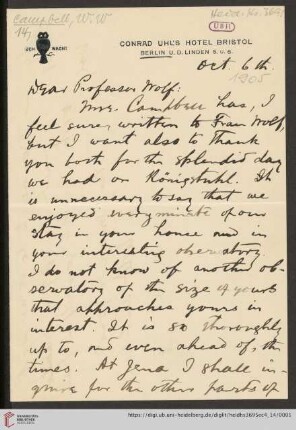 Campbell, W. W
14,
UEH WACHT
UBH
CONRAD UHL'S HOTEL BRISTOL
BERLIN U.D. LINDEN 5 u. 6.
Oct 6th.
1905
Dear Professor Wolf:
Mrs. Campbell has, I
feel sure, written to Frau Wolf,
but I want also to thank
you both for the splendid day
we had on Königstuhl. It
is unnecessary to say that we
enjoyed every minute of our
stay in your house and in
your interesting observatory.
I do not know of another ob-
servatory of the size of yours
that approaches yours in
interest. It is so thoroughly
up to, and even ahead of, the
times. At Jena I shall in-
quire for the other parts of
https://digi.ub.uni-heidelberg.de/diglit/heidhs3695ecA_14/0001